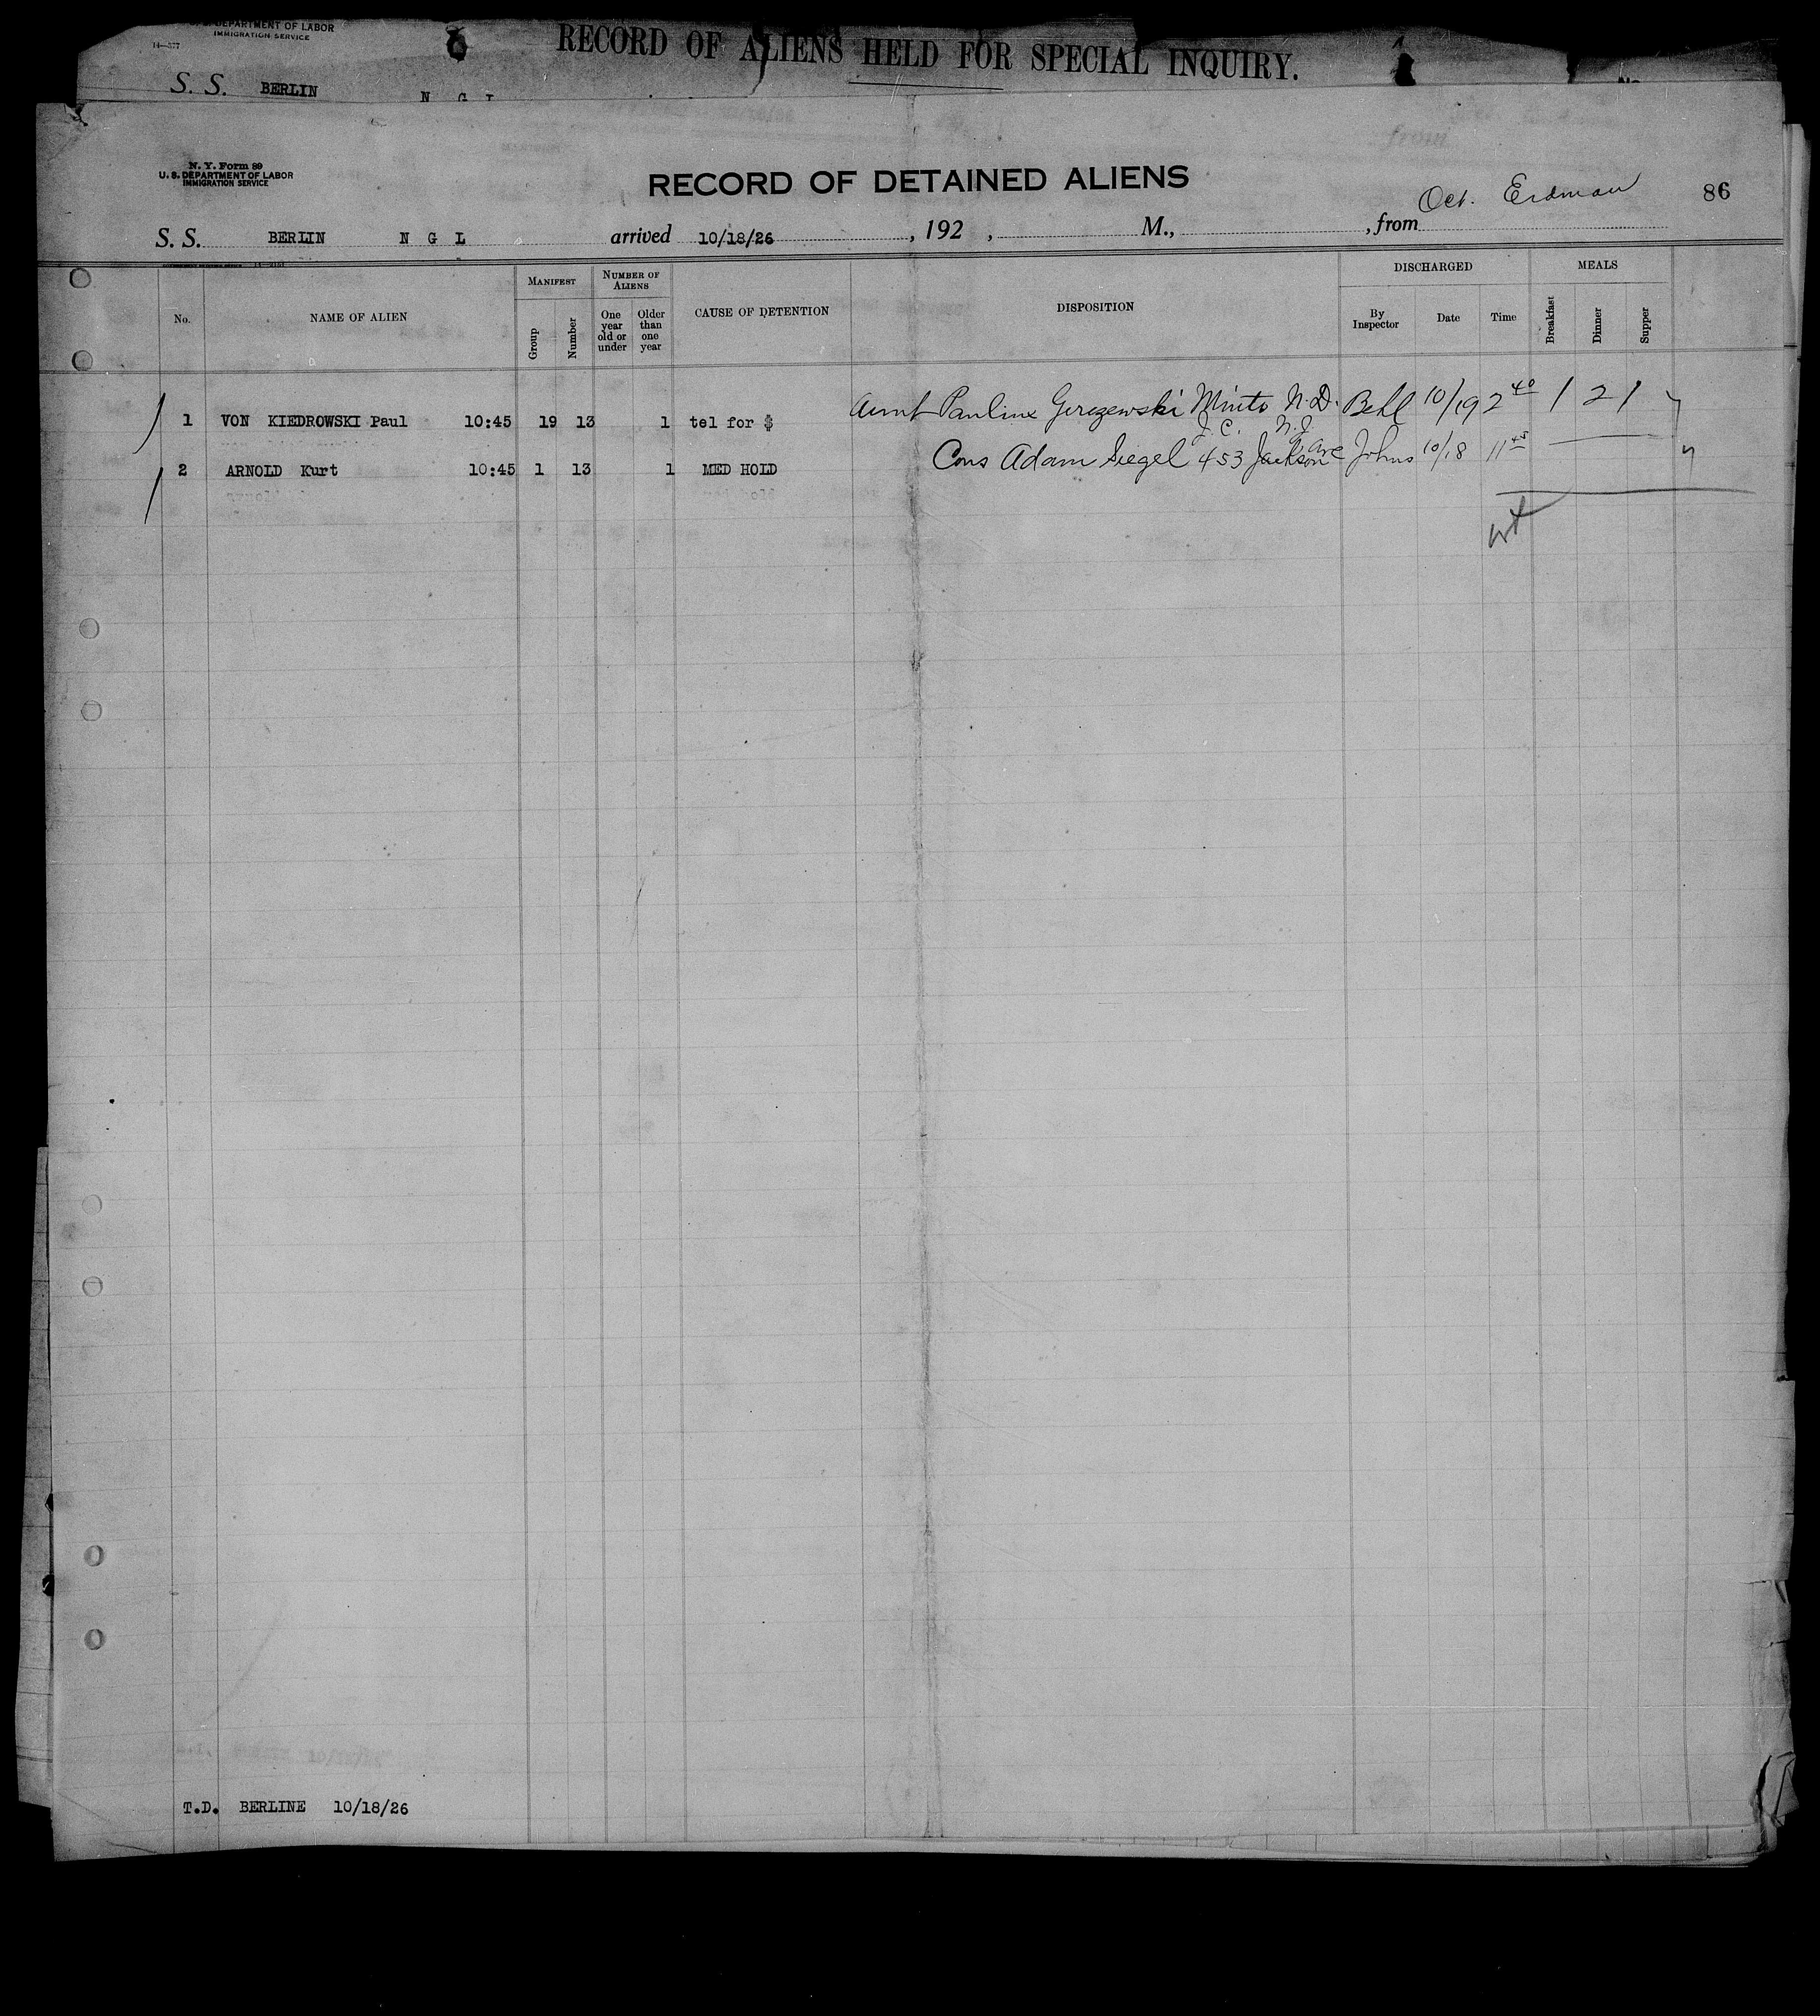 U. S. DEPARTMENT OF LABOR
IMMIGRATION SERVICE
14—577
RECORD OF ALIENS HELD FOR SPECIAL INQUIRY.
S. S. BERLIN N G L
N. Y. Form 89
U. S. DEPARTMENT OF LABOR
IMMIGRATION SERVICE
RECORD OF DETAINED ALIENS
Oct. Erdman 86
S. S. BERLIN N G L arrived 10/18/26, 192 , M., , from
No. NAME OF ALIEN MANIFEST Group Number NUMBER OF ALIENS One year old or under Older than one year CAUSE OF DETENTION DISPOSITION DISCHARGED By Inspector Date Time MEALS Breakfast Dinner Supper
1 VON KIEDROWSKI Paul 10:45 19 13 1 tel for $ Aunt Pauline Gerszewski Minto N.D. Behl 10/19 2 40 1 2 1
J. C. N.J.
2 ARNOLD Kurt 10:45 1 13 1 MED HOLD Cous Adam Siegel 453 Jackson Ave Johns 10/18 11 45
T.D. BERLINE 10/18/26